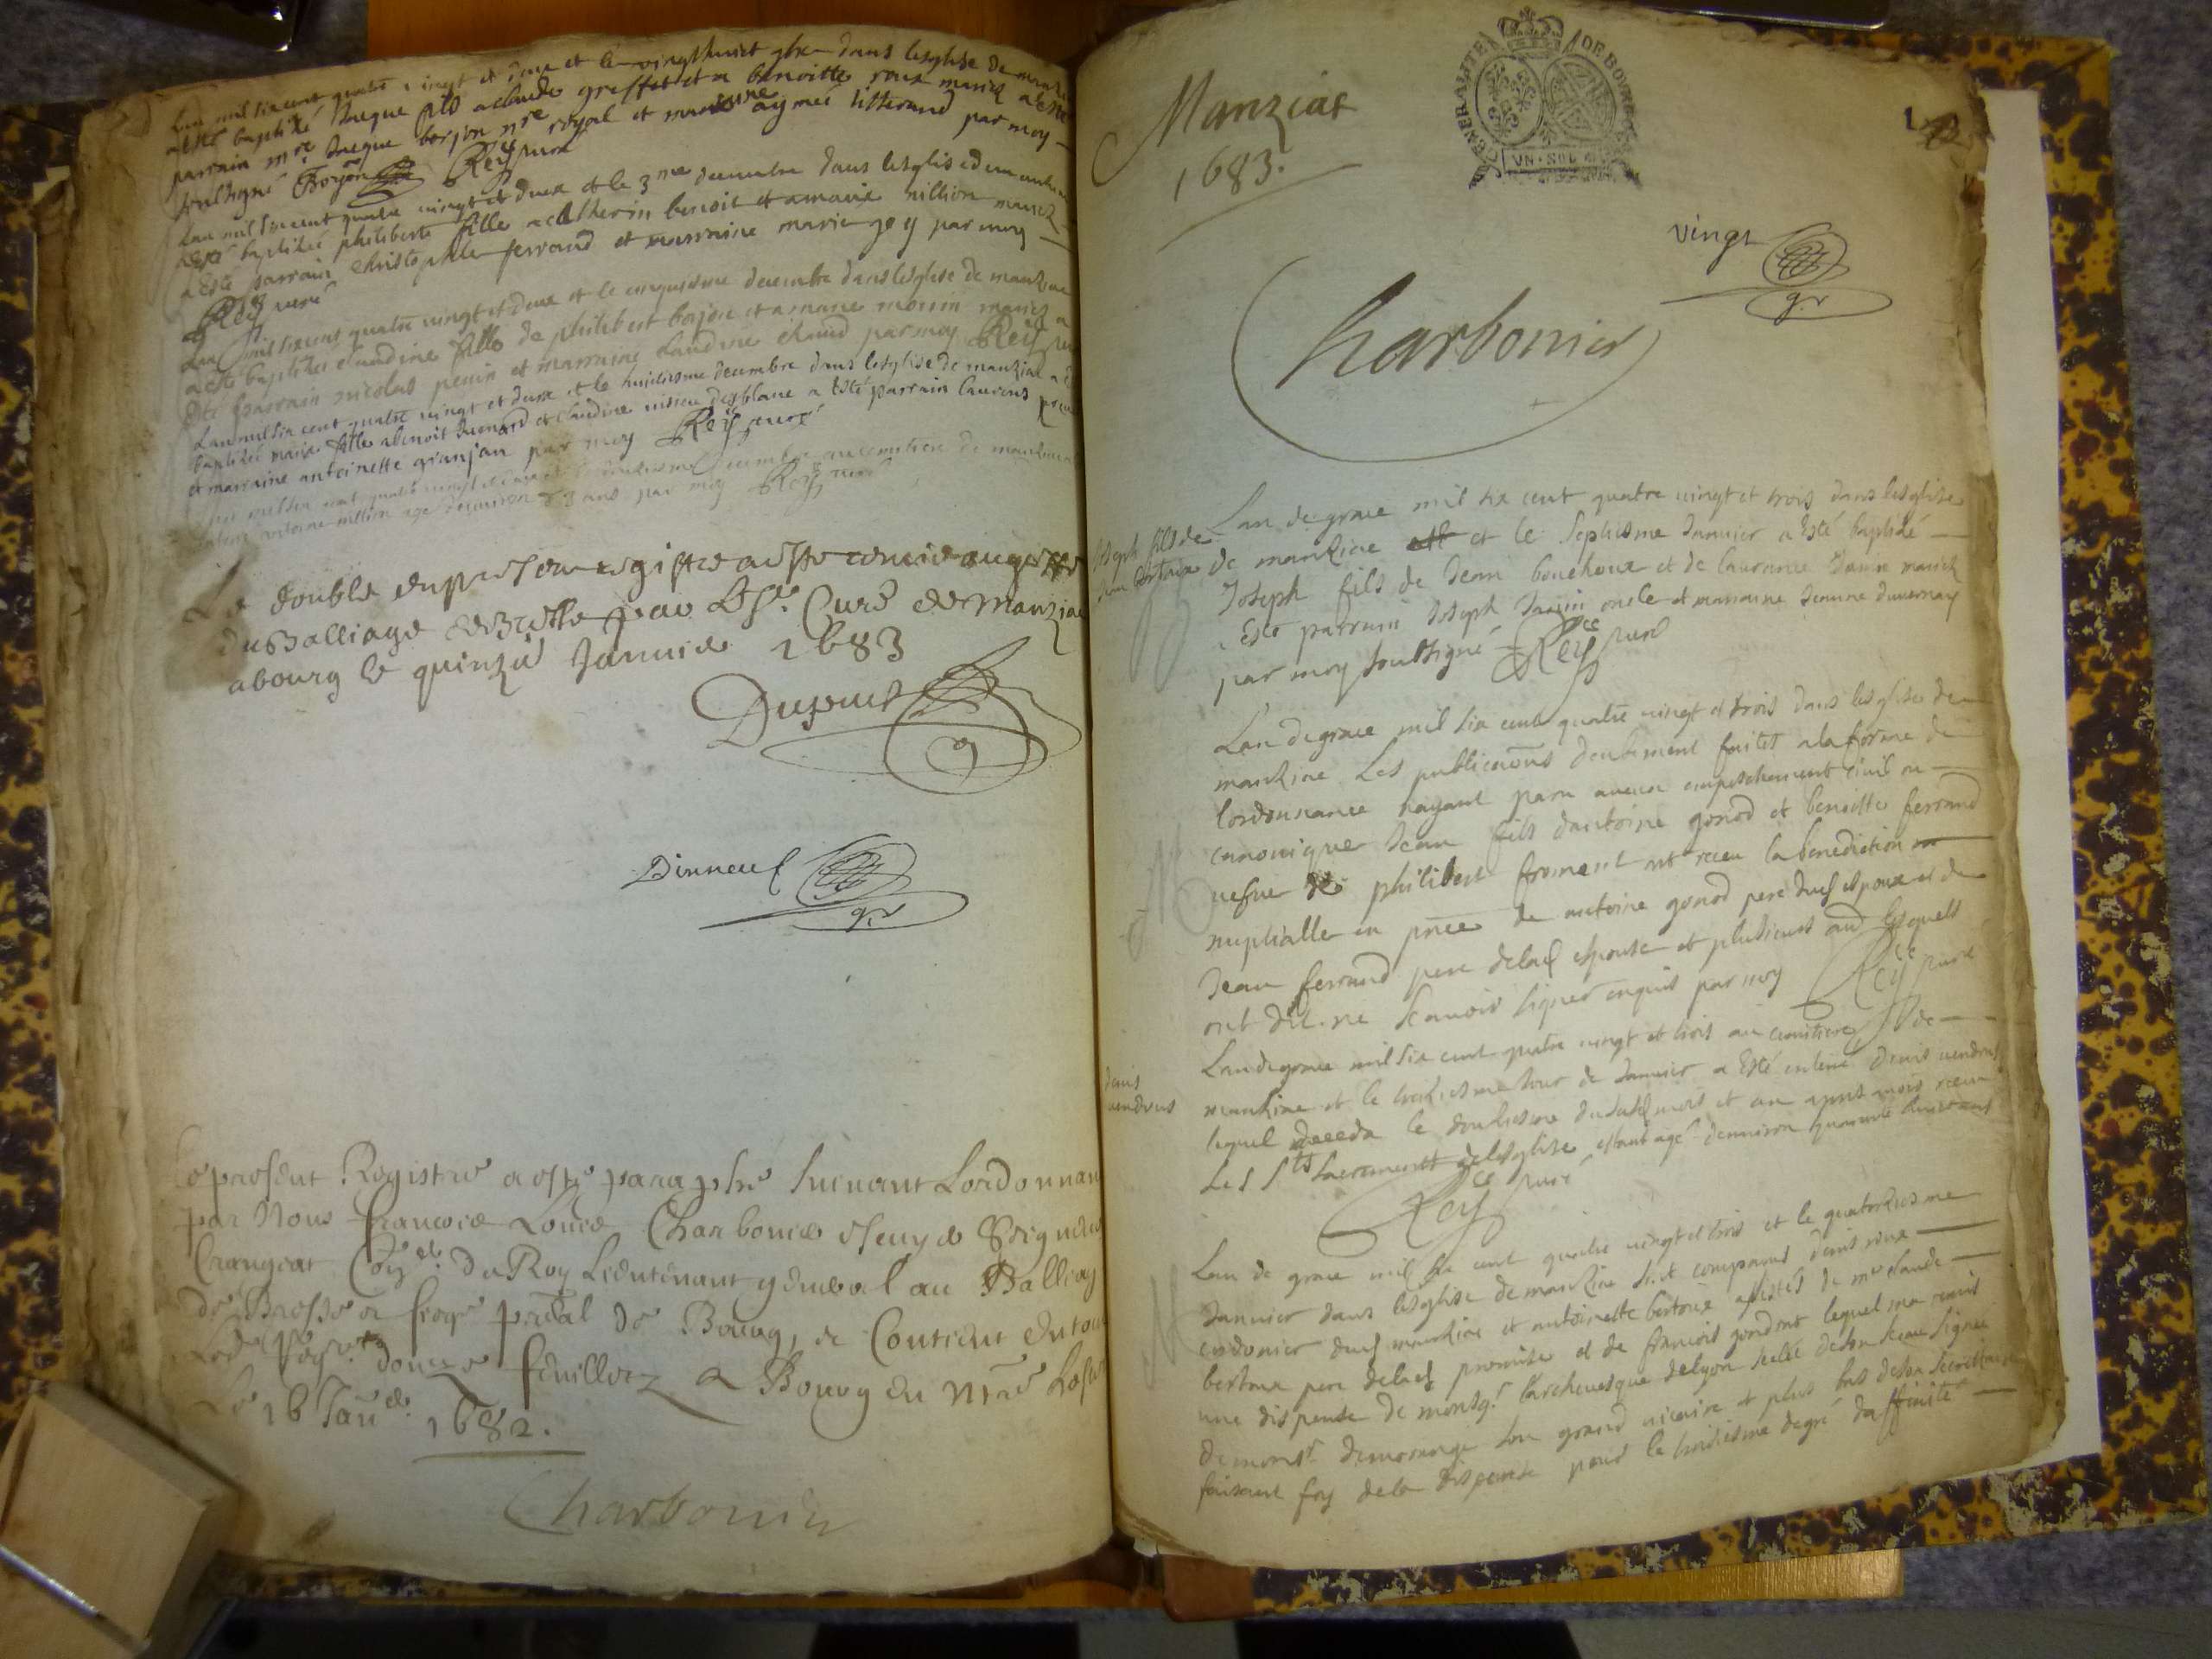 Lan mil six cent quatre vingt et deux et le vingthuict 9bre dans lesglise de
a esté baptizé Jacque fils a claude greffet et a benoitte roux mariez a esté
parrain mre Jacque borjon nre royal et marraine aymeé litterand par moy
soussigné Borjon Rey curé
Lan mil six cent quatre vingt et deux et le 3me decembre dans lesglise de
a esté baptizeé philiberte fille a catherin benoit et a marie million mariez
a esté parrain christophle ferrand et marraine marie gey par moy
Rey curé
Lan mil six cent quatre vingt et deux et le cinquiesme decembre dans lesglise de manziac
a esté baptizeé claudine fille de philibert borjon et a marie morin mariez a
esté parrain nicolas penin et marraine claudine chanud par moy Rey
Lan mil six cent quatre vingt et deux et le huitiesme decembre dans lesglise de manziac a
baptizeé marie fille a benoit and et claudine a esté parrain laurens
et marraine antoinette granjan par moy Rey curé
mil six cent quatre vingt et decembre au cemitiere de manziac
antoine million agé denviron ans par moy Rey curé
Le double du present registre a esté remis au greffe
du Balliage de Bresse par le Sr. Curé de Manziac
a bourg le quinzie Janvier 1683
Dupuis
Dinneuf
gr
Le present Registre a esté paraphé suivant Lordonnan
par Nous francois Louis Charbonier escuyer Seigneur
Crangeat Coner. du Roy Lieutenant general au Balliag
de Bresse et siege preal de Bourg, et Contient En tou
Led. Regre douze feuilletz a Bourg En Nre hostel
Le 16 Janer. 1682.
Charbonier
Manziat
1683.
GENERALITE DE BOURG
UN·SOL
vingt
gr
Charbonier
Joseph fils de
Lan de grace mil six cent quatre vingt et trois dans lesglise
de manziac et le septiesme Janvier a esté baptizé
Joseph fils de Jean bouchoux et de laurence Janin mariez
a Esté parrain Joseph Janin oncle et marraine Jeanne duvernay
par moy soussigné Rey curé
Lan de grace mil six cent quatre vingt et trois dans lesglise de
manziac Les publications deubment faites a la forme de
lordonnance nayant paru aucun empeschement civil ou
canonique Jean fils dantoine gonod et benoitte ferrand
vefve de philibert froment ont receu la benediction
nuptialle en pnce de antoine gonod pere dud espoux et de
Jean ferrand pere delad espouse et plusieurs aud lesquels
ont dit ne scavoir signer enquis par moy Rey curé
Lan de grace mil six cent quatre vingt et trois au cemitiere de
denis
vendrus
manziac et le treziesme Jour de Janvier a Esté enterré denis vendrus
lequel deceda le douziesme dudit mois et an apres avoir receu
Les Sts Sacrements de lesglise estant agé denviron quarante huit ans
Rey curé
Lan de grace mil six cent quatre vingt et trois et le quatorziesme
Janvier dans lesglise de manziac sont comparus denis roux
cordonier dud manziac et antoinette bertoux assistés de mre claude
bertoux pere delad promise et de francois gondret lequel ma remis
une dispense de monsgr. larchevesque de lyon scellé de son sceau signeé
de monsr. demorange son grand vicaire et plus bas de son secretaire
faisant foy de la dispense pour le troisiesme degré daffinité